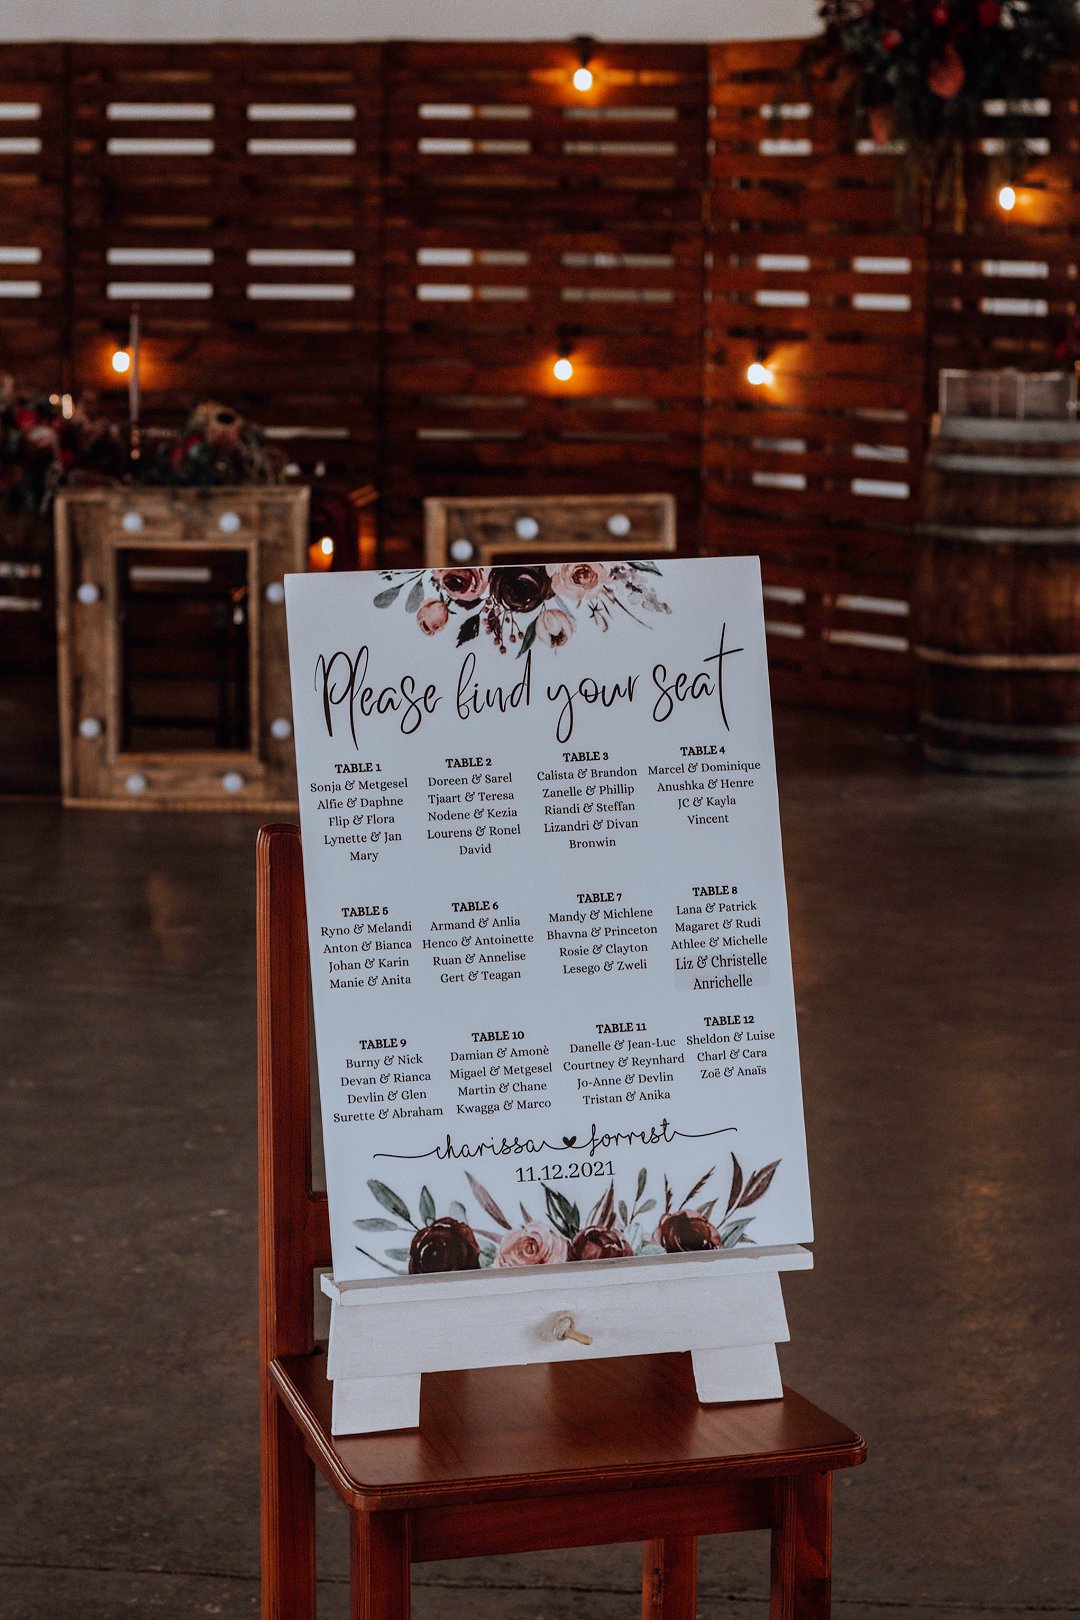 Please find your seat
TABLE 1
Sonja & Metgesel
Alfie & Daphne
Flip & Flora
Lynette & Jan
Mary
TABLE 2
Doreen & Sarel
Tjaart & Teresa
Nodene & Kezia
Lourens & Ronel
David
TABLE 3
Calista & Brandon
Zanelle & Phillip
Riandi & Steffan
Lizandri & Divan
Bronwin
TABLE 4
Marcel & Dominique
Anushka & Henre
JC & Kayla
Vincent
TABLE 5
Ryno & Melandi
Anton & Bianca
Johan & Karin
Manie & Anita
TABLE 6
Armand & Anlia
Henco & Antoinette
Ruan & Annelise
Gert & Teagan
TABLE 7
Mandy & Michlene
Bhavna & Princeton
Rosie & Clayton
Lesego & Zweli
TABLE 8
Lana & Patrick
Magaret & Rudi
Athlee & Michelle
Liz & Christelle
Anrichelle
TABLE 9
Burny & Nick
Devan & Rianca
Devlin & Glen
Surette & Abraham
TABLE 10
Damian & Amonè
Migael & Metgesel
Martin & Chane
Kwagga & Marco
TABLE 11
Danelle & Jean-Luc
Courtney & Reynhard
Jo-Anne & Devlin
Tristan & Anika
TABLE 12
Sheldon & Luise
Charl & Cara
Zoë & Anaïs
charissa ♥ forrest
11.12.2021